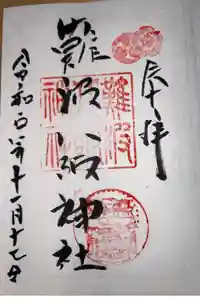 奉拝
難波八阪神社
令和 年十一月十七日